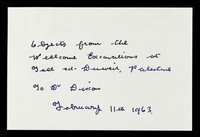 Objects from the
Wellcome Excavations at
Tell ed-Duweir, Palestine
To Dr Dixon
February 11th 1963.